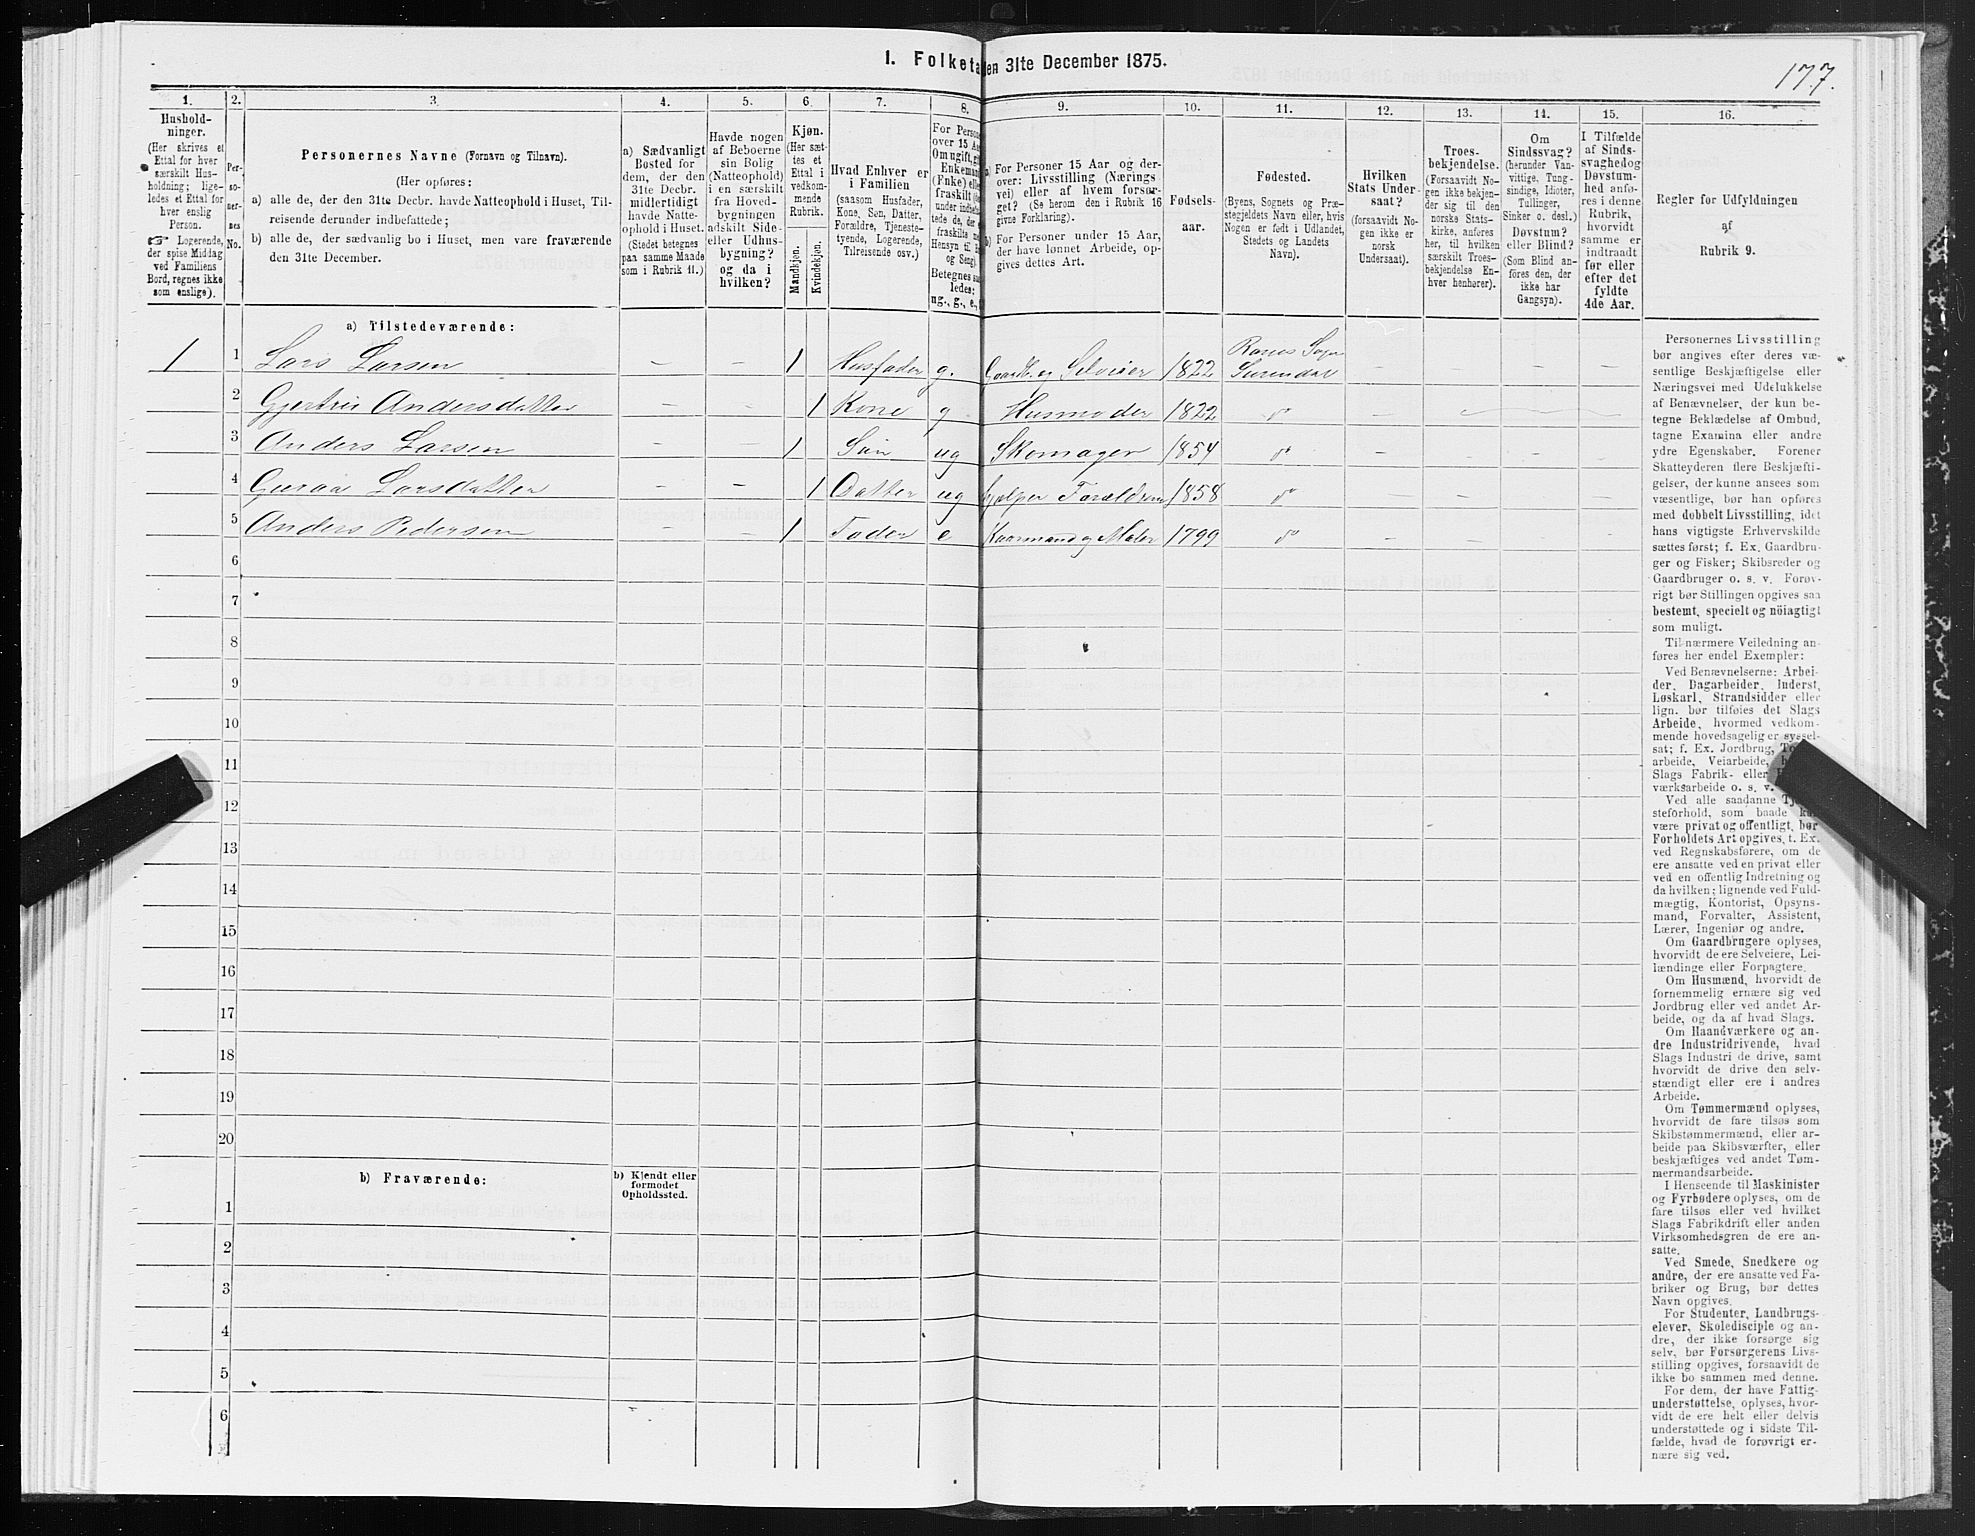 1. Folketæ
den 31te December 1875.
177.
1.
2.
3.
4.
5.
6.
7.
8.
9.
10.
11.
12.
13.
14.
15.
16.
Hushold-
ninger.
(Her skrives et
Ettal for hver
særskilt Hus-
holdning; lige-
ledes et Ettal for
hver enslig
Person.
☞ Logerende,
der spise Middag
ved Familiens
Bord, regnes ikke
som enslige).
Per-
so-
ner-
nes
No.
Personernes Navne (Fornavn og Tilnavn).
(Her opføres:
a) alle de, der den 31te Decbr. havde Natteophold i Huset, Til-
reisende derunder indbefattede;
b) alle de, der sædvanlig bo i Huset, men vare fraværende
den 31te December.
a) Sædvanligt
Bosted for
dem, der den
31te Decbr.
midlertidigt
havde Natte-
ophold i Huset.
(Stedet betegnes
paa samme Maade
som i Rubrik 11.)
Havde nogen
af Beboerne
sin Bolig
(Natteophold)
i en særskilt
fra Hoved-
bygningen
adskilt Side-
eller Udhus-
bygning?
og da i
hvilken?
Kjøn.
(Her sæt-
tes et
Ettal i
vedkom-
mende
Rubrik.
Mandkjøn.
Kvindekjøn.
Hvad Enhver er
i Familien
(saasom Husfader,
Kone, Søn, Datter,
Forældre, Tjeneste-
tyende, Logerende,
Tilreisende osv.)
For Person
over 15 Aa
Om ugift, g
Enkeman
(Enke) ell
fraskilt
Betegnes saa
ledes:
ug., g., e.,
a) For Personer 15 Aar og der-
over: Livsstilling (Nærings
vei) eller af hvem forsør-
get? (Se herom den i Rubrik 16
givne Forklaring).
b) For Personer under 15 Aar,
der have lønnet Arbeide, op-
gives dettes Art.
Fødsels-
aar.
Fødested.
(Byens, Sognets og Præ-
stegjeldets Navn eller, hvis
Nogen er født i Udlandet,
Stedets og Landets
Navn).
Hvilken
Stats Under-
saat?
(forsaavidt No-
gen ikke er
norsk
Undersaat).
Troes-
bekjendelse.
(Forsaavidt No-
gen ikke bekjen-
der sig til den
norske Stats-
kirke, anføres
her, til hvilken
særskilt Troes-
bekjendelse En-
hver henhører).
Om
Sindssvag?
(herunder Van-
vittige, Tung-
sindige, Idioter,
Tullinger,
Sinker o. desl.)
Døvstum?
eller Blind?
(Som Blind an-
føres den, der
ikke har
Gangsyn).
I Tilfælde
af Sinds-
svaghed og
Døvstum-
hed anfø-
res i denne
Rubrik,
hvorvidt
samme er
indtraadt
før eller
efter det
fyldte
4de Aar.
Regler for Udfyldningen
af
Rubrik 9.
a) Tilstedeværende:
1 1 Lars Larsen – – 1 Husfader g. Gaardb. og Selveier 1822 Ranes Sogn Surendal – – – –
2 Gjertrud Andersdatter – – 1 Kone g Husmoder 1822 do – – – –
3 Anders Larsen – – 1 Søn ug Skomager 1854 do – – – –
4 Guraa Larsdatter – – 1 Datter ug hjælper Forældrene 1858 do – – – –
5 Anders Pedersen – – 1 Fader e Kaarmand og Maler 1799 do – – – –
6
7
8
9
10
11
12
13
14
15
16
17
18
19
20
b) Fraværende:
b) Kjendt eller
formodet
Opholdssted.
1
2
3
4
5
6
Personernes Livsstilling
bør angives efter deres væ-
sentlige Beskjæftigelse eller
Næringsvei med Udelukkelse
af Benævnelser, der kun be-
tegne Beklædelse af Ombud,
tagne Examina eller andre
ydre Egenskaber. Forener
Skatteyderen flere Beskjæfti-
gelser, der kunne ansees som
væsentlige, bør han opføres
med dobbelt Livsstilling, idet
hans vigtigste Erhvervskilde
sættes først; f. Ex. Gaardbru-
ger og Fisker; Skibsreder og
Gaardbruger o. s. v. Forøv-
rigt bør Stillingen opgives saa
bestemt, specielt og nöiagtigt
som muligt.
Til nærmere Veiledning an-
føres her endel Exempler:
Ved Benævnelserne: Arbei-
der, Dagarbeider, Inderst,
Løskarl, Strandsidder eller
lign. bør tilføies det Slags
Arbeide, hvormed vedkom-
mende hovedsagelig er syssel-
sat; f. Ex. Jordbrug,
arbeide, Veiarbeide,
Slags Fabrik- eller
værksarbeide o. s. v.
Ved alle saadanne
steforhold, som baade
være privat og offentligt, bør
Forholdets Art opgives, t. Ex.
ved Regnskabsførere, om de
ere ansatte ved en privat eller
ved en offentlig Indretning og
da hvilken; lignende ved Fuld-
mægtig, Kontorist, Opsyns-
mand, Forvalter, Assistent,
Lærer, Ingeniør og andre.
Om Gaardbrugere oplyses,
hvorvidt de ere Selveiere, Lei-
lændinge eller Forpagtere.
Om Husmænd, hvorvidt de
fornemmelig ernære sig ved
Jordbrug eller ved andet Ar-
beide, og da af hvad Slags.
Om Haandværkere og an-
dre Industridrivende, hvad
Slags Industri de drive, samt
hvorvidt de drive den selv-
stændigt eller ere i andres
Arbeide.
Om Tømmermænd oplyses,
hvorvidt de fare tilsøs som
Skibstømmermænd, eller ar-
beide paa Skibsværfter, eller
beskjæftiges ved andet Tøm-
mermandsarbeide.
I Henseende til Maskinister
og Fyrbødere oplyses, om de
fare tilsøs eller ved hvilket
Slags Fabrikdrift eller anden
Virksomhedsgren de ere an-
satte.
Ved Smede, Snedkere og
andre, der ere ansatte ved Fa-
briker og Brug, bør dettes
Navn opgives.
For Studenter, Landbrugs-
elever, Skoledisciple og an-
dre, der ikke forsørge sig
selv, bør Forsørgerens Livs-
stilling opgives, forsaavidt de
ikke bo sammen med denne.
For dem, der have Fattig-
understøttelse, oplyses, hvor-
vidt de ere helt eller delvis
understøttede og i sidste Til-
fælde, hvad de forøvrigt er-
nære sig ved.